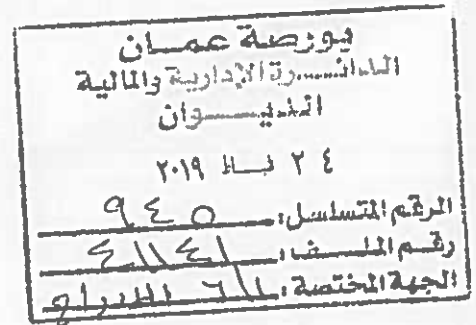 بورصة عمان
الدائـــرة الإدارية والمالية
الديـــوان
٢٤ شباط ٢٠١٩
الرقم المتسلسل: ٩٤٥
رقم الملــف: ٤١١٤١
الجهة المختصة: الادراج